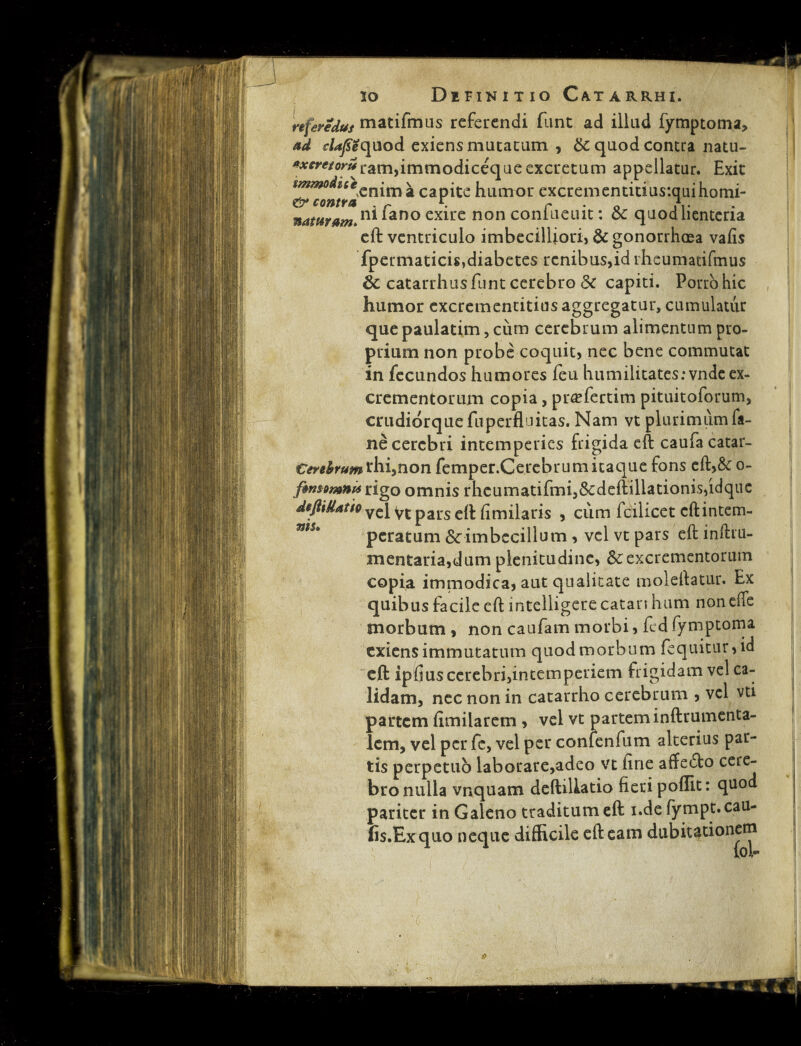 10 DEFINITIO CATARRHI.
referēdus matiſmus referendi ſunt ad illud ſymptoma,
ad claſsē quod exiens mutatum , & quod contra natu-
excretorū ram,immodicéque excretum appellatur. Exit
immodicè enim à capite humor excrementitius:qui homi-
& contra
naturam. ni ſano exire non conſueuit : & quod lienteria
eſt ventriculo imbecilliori, & gonorrhœa vaſis
ſpermaticis,diabetes renibus,id rheumatiſmus
& catarrhus ſunt cerebro & capiti. Porrò hic
humor excrementitius aggregatur, cumulatúr
que paulatim , cùm cerebrum alimentum pro-
prium non probè coquit, nec bene commutat
in ſecundos humores ſeu humilitates: vnde ex-
crementorum copia , præſertim pituitoſorum,
crudiórque ſuperfluitas. Nam vt plurimùm ſa-
nè cerebri intemperies frigida eſt cauſa catar-
Cerebrum rhi,non ſemper.Cerebrum itaque fons eſt,& o-
fons omnis rigo omnis rheumatiſmi,& deſtillationis,idque
deſtillatio vel vt pars eſt ſimilaris , cùm ſcilicet eſt intem-
nis. peratum & imbecillum , vel vt pars eſt inſtru-
mentaria,dum plenitudine, & excrementorum
copia immodica, aut qualitate moleſtatur. Ex
quibus facile eſt intelligere catarrhum non eſſe
morbum , non cauſam morbi , ſed ſymptoma
exiens immutatum quod morbum ſequitur , id
eſt ipſius cerebri,intemperiem frigidam vel ca-
lidam, nec non in catarrho cerebrum , vel vti
partem ſimilarem , vel vt partem inſtrumenta-
lem, vel per ſe, vel per conſenſum alterius par-
tis perpetuò laborare,adeo vt ſine affecto cere-
bro nulla vnquam deſtillatio fieri poſſit : quod
pariter in Galeno traditum eſt 1.de ſympt. cau-
ſis.Ex quo neque difficile eſt eam dubitationem
ſol-